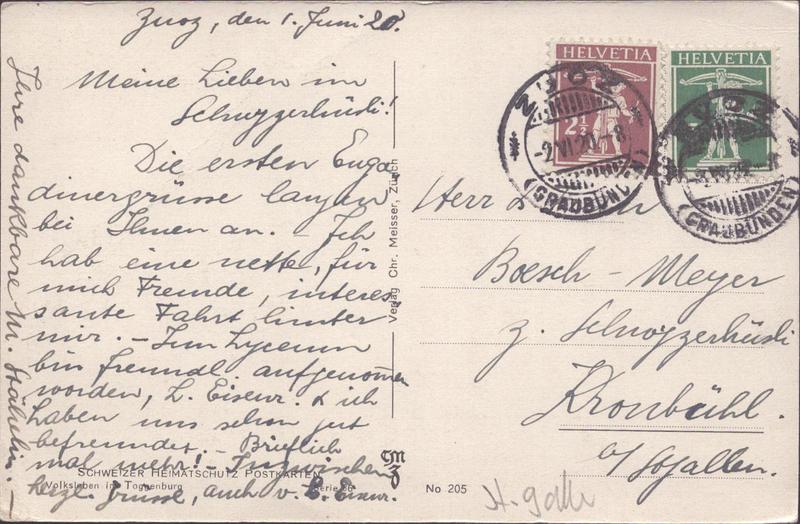 Zuoz, den 1. Juni 20.
Meine Lieben im
Schwyzerhüsli!
Die ersten Enga
dinergrüsse langen
bei Ihnen an. Ich
hab eine nette, für
mich Fremde, interes
sante Fahrt hinter
mir. – Im Lyceum
bin freundl. aufgenommen
worden, L. Eisenr. & ich
haben uns schon gut
befreundet. – Brieflich
mal mehr! – Inzwischen
herzl. Grüsse, auch v. L. Eisenr.
Ihre dankbare M. Stähelin. –
SCHWEIZER HEIMATSCHUTZ POSTKARTEN
Volksleben im Toggenburg
Serie 36
Verlag Chr. Meisser, Zürich
No 205
HELVETIA
2½
HELVETIA
ZUOZ
-2.VI.20.-8
(GRAUBÜNDEN)
ZUOZ
(GRAUBÜNDEN)
Herr
Boesch – Meyer
z. Schwyzerhüsli
Kronbühl.
b/ St. Gallen.
St. Galle